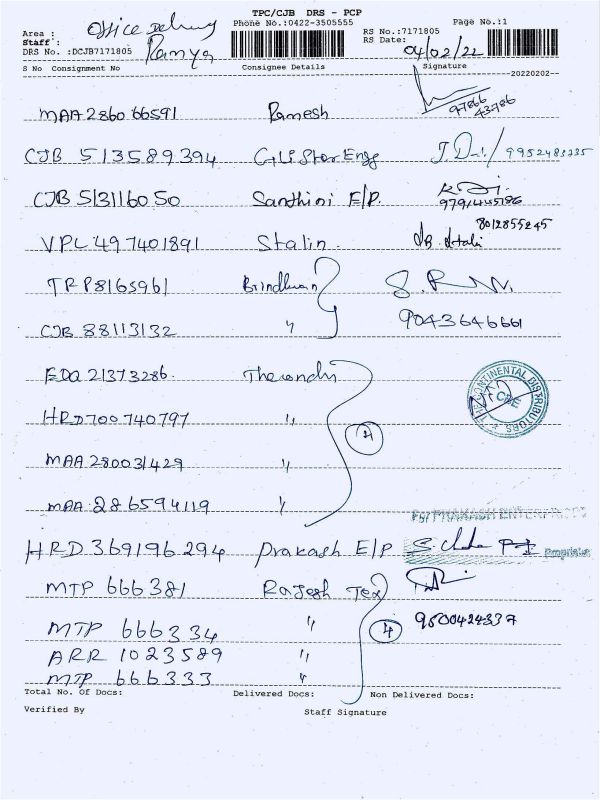 TPC/CJB DRS - PCP
Phone No.:0422-3505555
Page No.:1
Area : Office Delivery
Staff : Ramya
DRS No.:DCJB7171805
RS No.:7171805
RS Date: 04/02/22
S No Consignment No Consignee Details Signature
20220202
MAA 286066591 Ramesh 97866 43786
CJB 513589394 G.U Star Engg 9952483235
CJB 513116050 Santhini E/P.
VPL 497401891 Stalin. 8012855245
TRP 8165961 Brindhvan
CJB 88113132 " 9043646661
EDQ 21373286. THE CONTINENTAL DISTRIBUTORS CBE
HRD 700740797 " 4
MAA 280031429 "
MAA 286594119 "
For PRAKASH ENTERPRISES
HRD 369196294 Prakash E/P Proprietor
MTP 666381 Rajesh Tex
MTP 666334 " 4 9500424337
ARR 1023589 "
MTP 666333 "
Total No. Of Docs: Delivered Docs: Non Delivered Docs:
Verified By Staff Signature